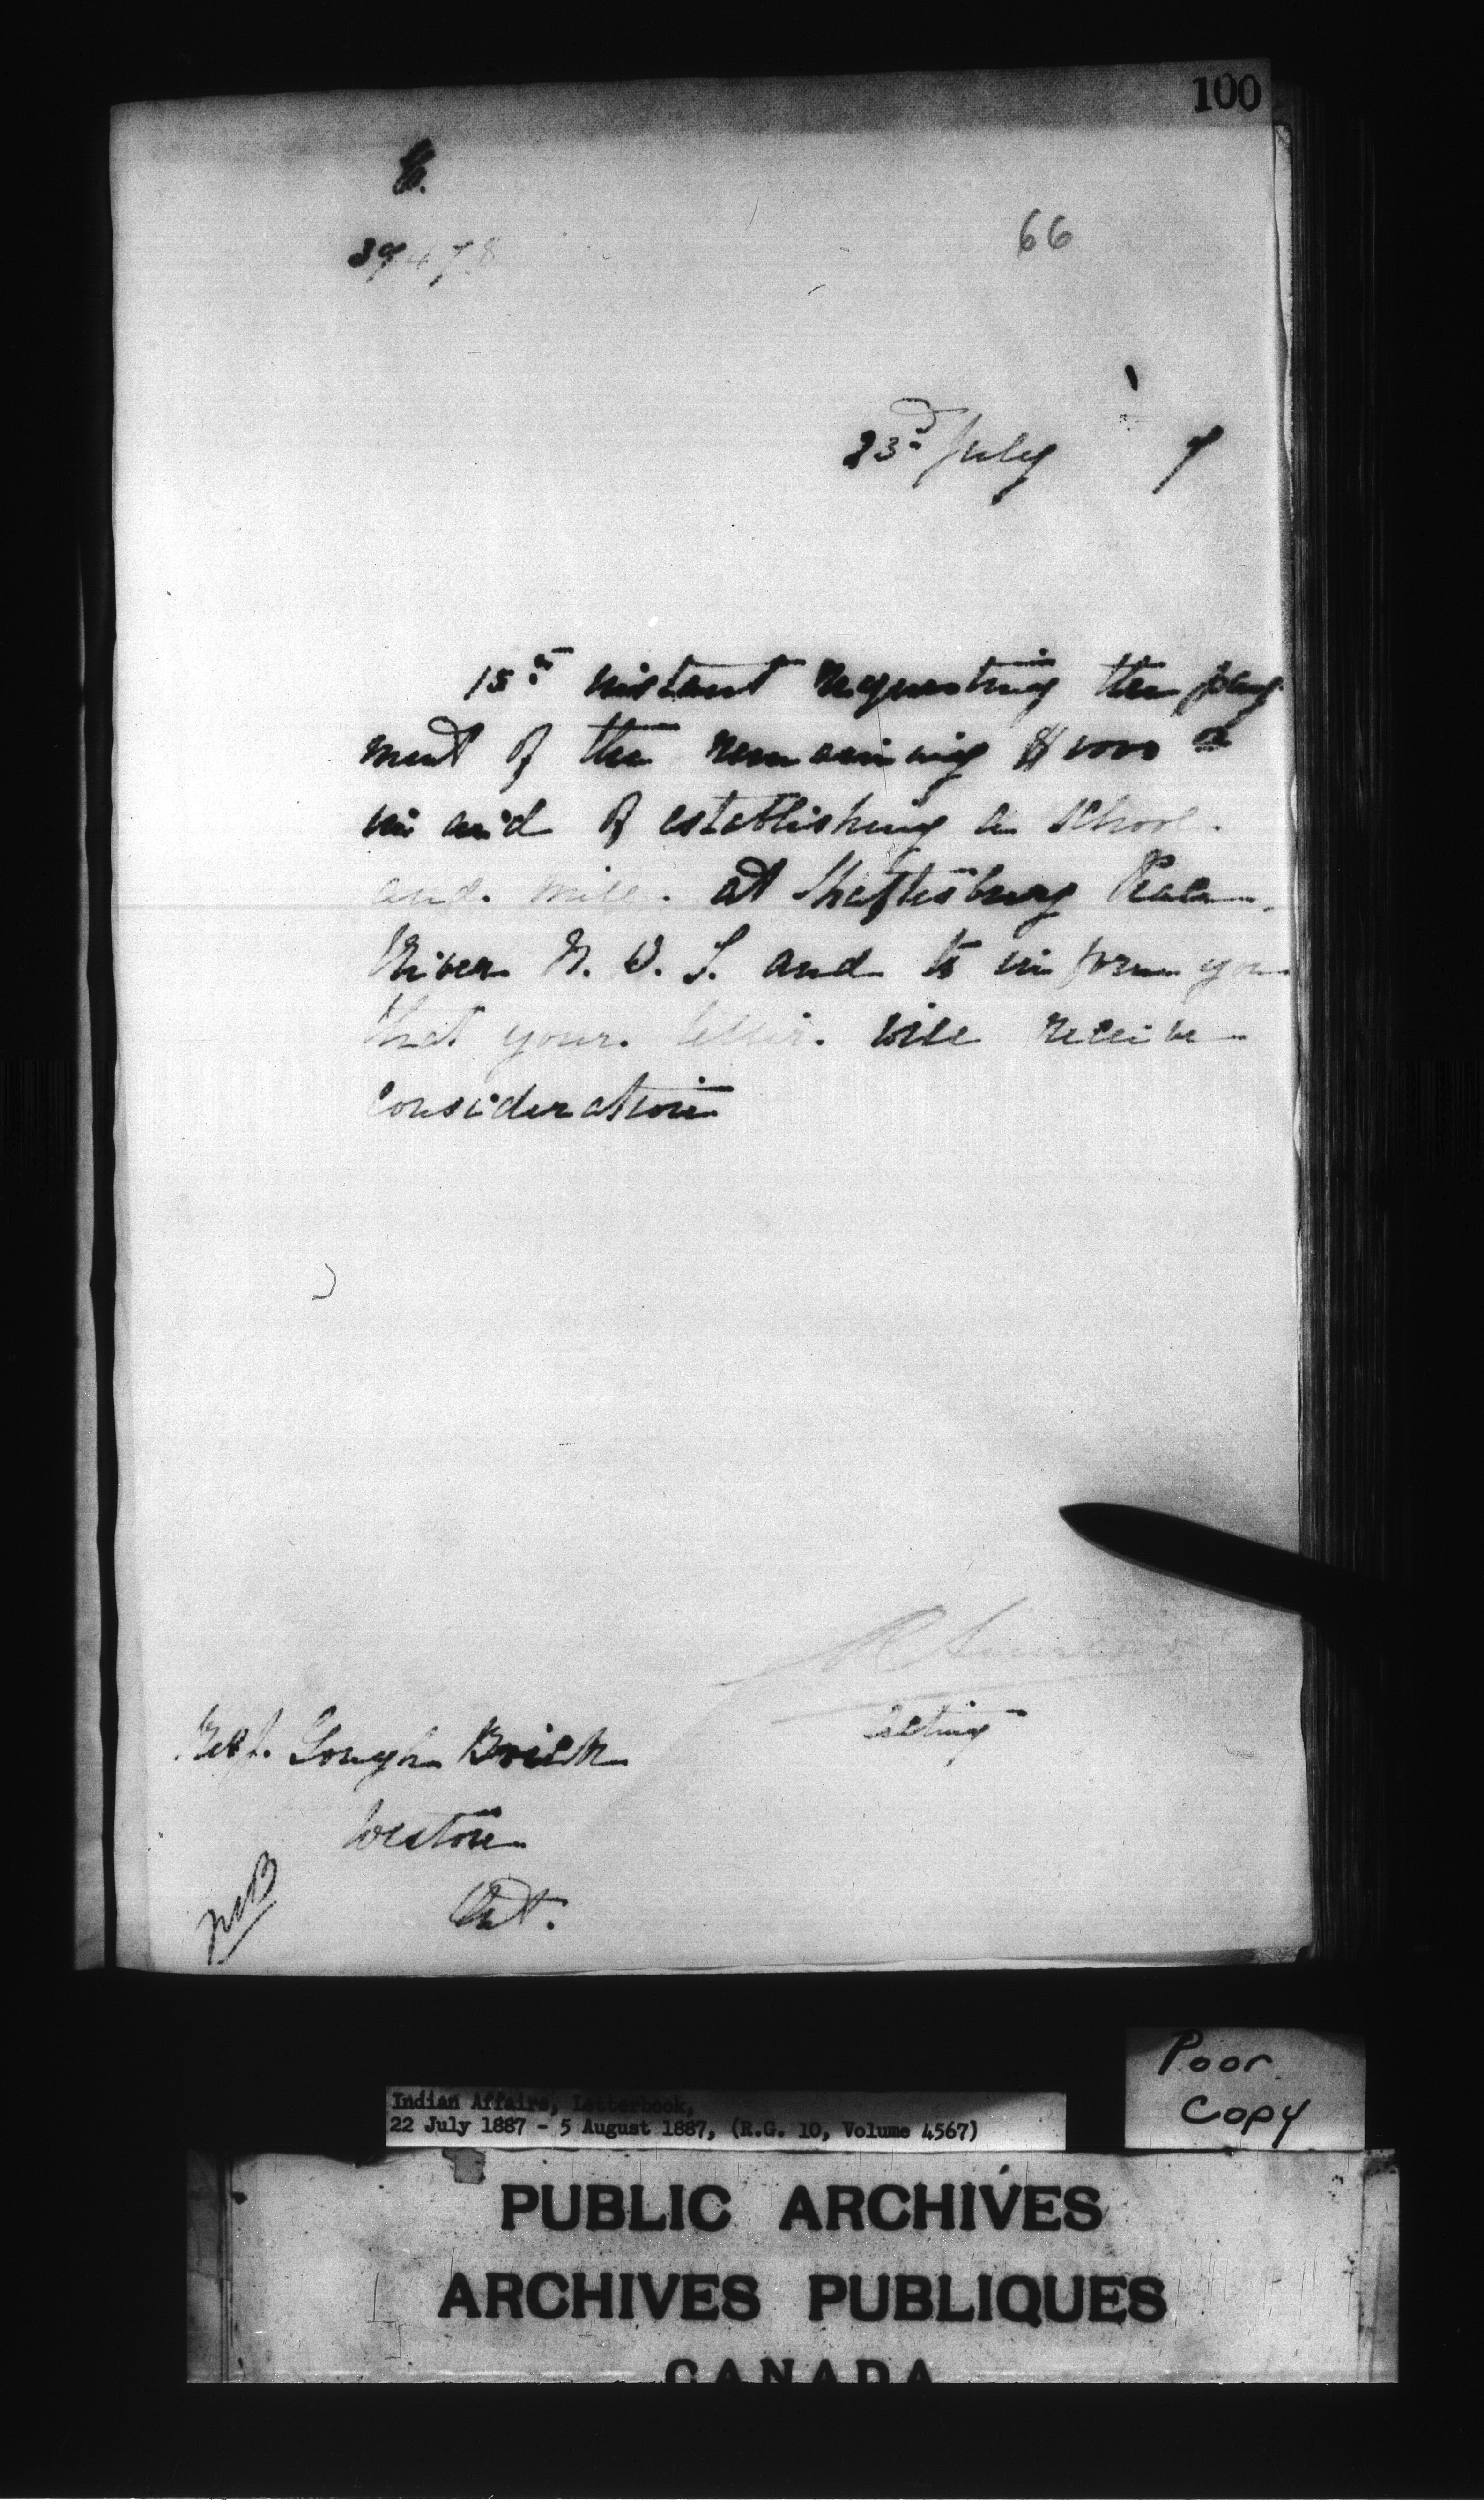 100
39478
66
23rd July 7
15th instant requesting the pay
ment of the remaining $1000 00
in aid of establishing a school
and mill at Shaftesbury Peace
River N. W. T. and to inform you
that your letter will receive
consideration
R Sinclair
Acting
Revd. J. Gough Brick
Weston
Ont.
Poor
Copy
Indian Affairs, Letterbook,
22 July 1887 - 5 August 1887, (R.G. 10, Volume 4567)
PUBLIC ARCHIVES
ARCHIVES PUBLIQUES
CANADA